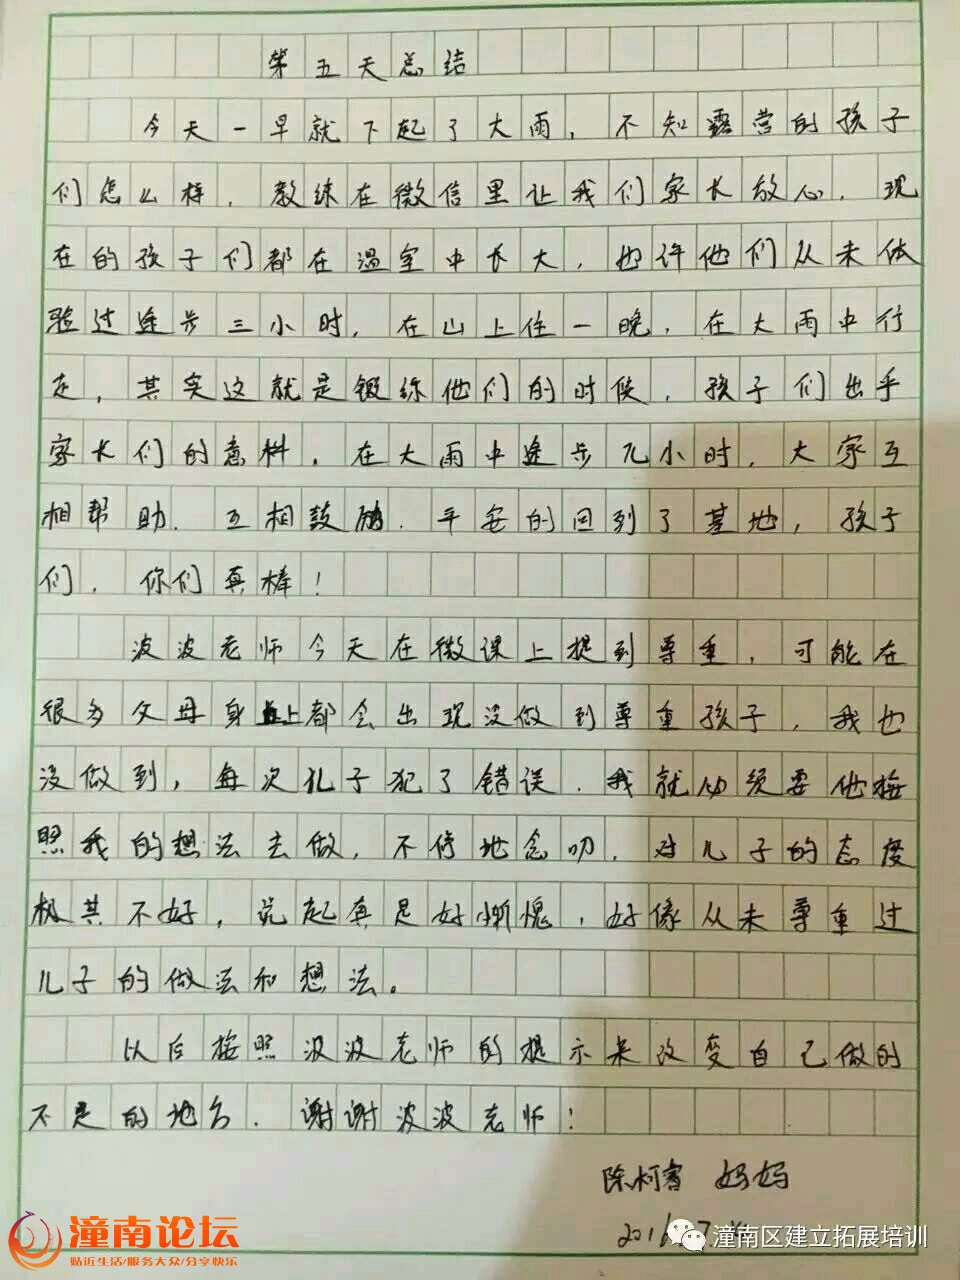 第五天总结
今天一早就下起了大雨，不知露营的孩子
们怎么样．教练在微信里让我们家长放心．现
在的孩子们都在温室中长大，也许他们从未体
验过途步三小时，在山上住一晚，在大雨中行
走，其实这就是锻练他们的时候．孩子们出乎
家长们的意料，在大雨中途步几小时，大家互
相帮助．互相鼓励．平安的回到了基地，孩子
们，你们真棒！
波波老师今天在微课上提到尊重，可能在
很多父母身上都会出现没做到尊重孩子，我也
没做到，每次儿子犯了错误．我就必须要他按
照我的想法去做，不停地念叨．对儿子的态度
极其不好，说起真是好惭愧，好像从未尊重过
儿子的做法和想法。
以后按照波波老师的提示来改变自己做的
不足的地方．谢谢波波老师！
陈柯睿 妈妈
2016.7.
潼南论坛
贴近生活/服务大众/分享快乐
潼南区建立拓展培训